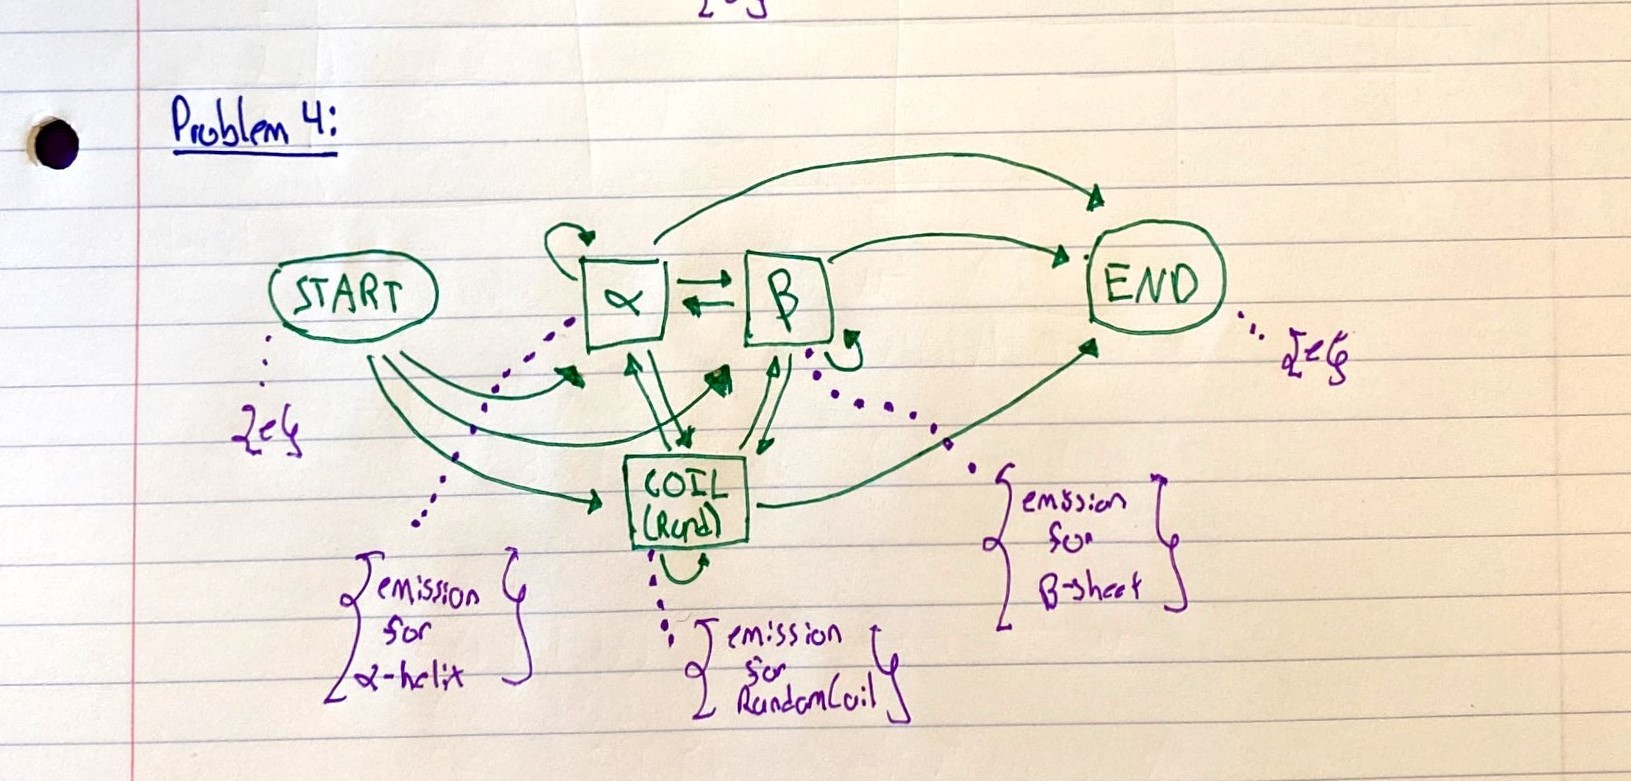 Problem 4:
START
α
β
END
{e}
{e}
COIL
(Rand)
{emission
for
α-helix}
{emission
for
RandomCoil}
{emission
for
β-sheet}